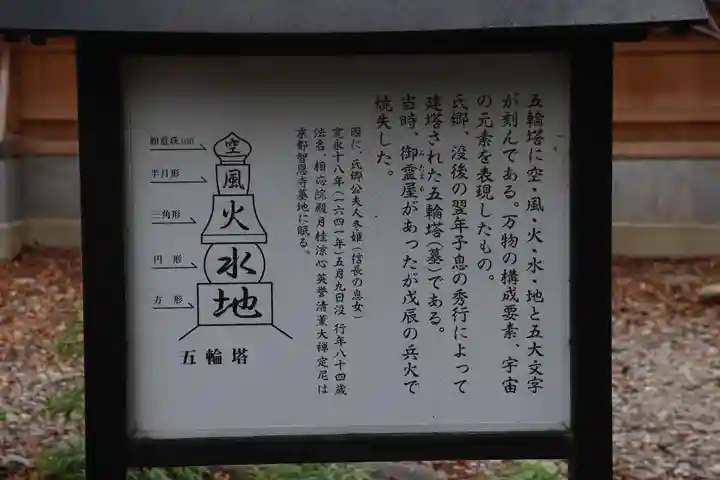 五輪塔に空・風・火・水・地と五大文字
が刻んである。万物の構成要素、宇宙
の元素を表現したもの。
氏郷、没後の翌年子息の秀行によって
建塔された五輪塔(墓)である。
当時、御霊屋があったが戊辰の兵火で
焼失した。
因に、氏郷公夫人冬姫(信長の息女)
寛永十八年(一六四一年)五月九日没 行年八十四歳
法名、相応院殿月桂涼心英誉清薫大禅定尼は
京都智恩寺墓地に眠る。
如意珠
半月形
三角形
円形
方形
空
風
火
水
地
五輪塔